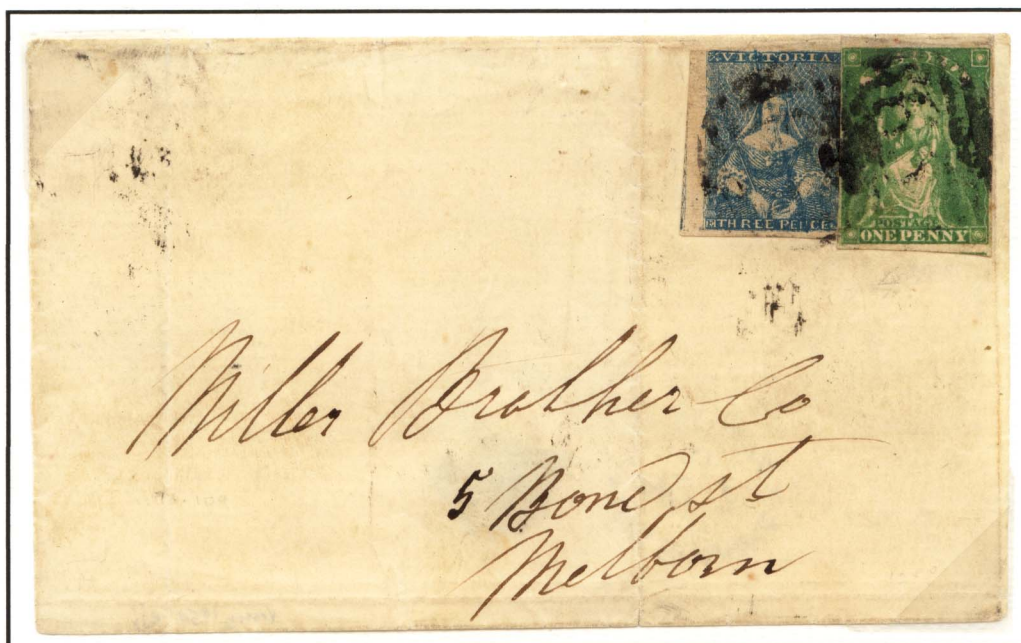 VICTORIA
THREE PENCE
POSTAGE
ONE PENNY
Miller Brother Co
5 Bond st
Melborn